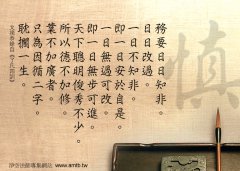 務要日日知非。
日日改過。
一日不知非。
即一日安於自是。
一日無過可改。
即一日無步可進。
天下聰明俊秀不少。
所以德不加修。
業不加廣者。
只為因循二字。
耽擱一生。
慎
淨空法師專集網站 www.amtb.tw